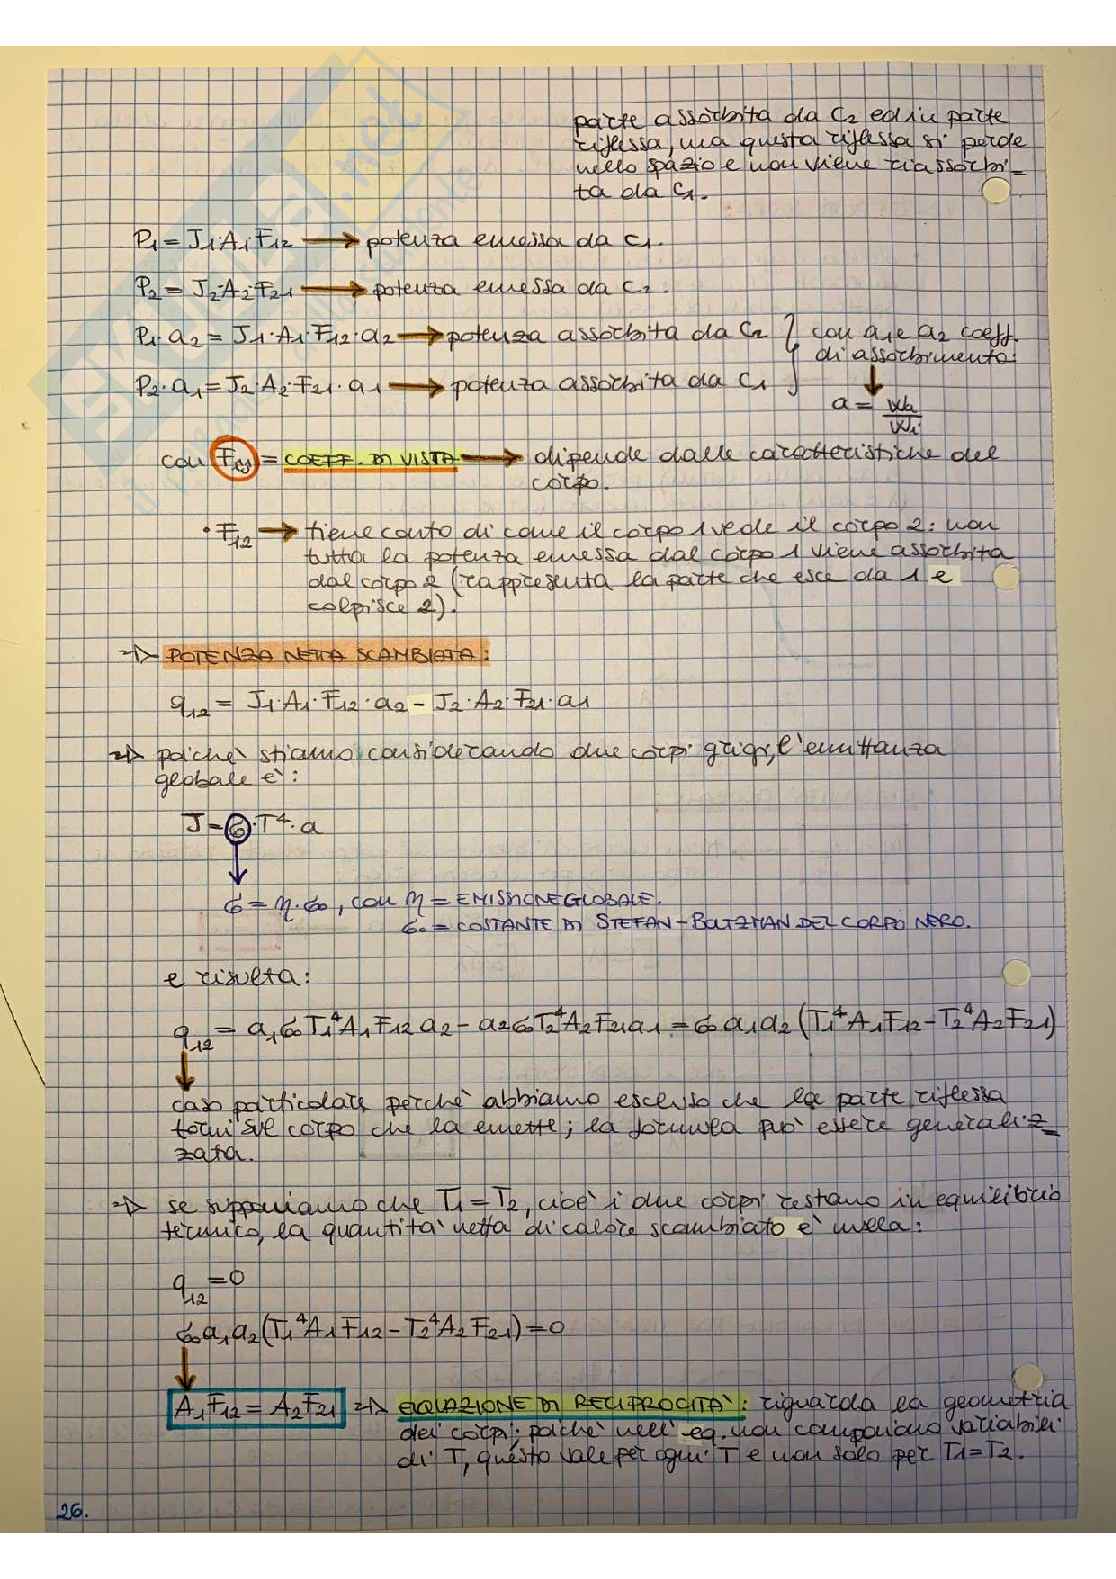 parte assorbita da C₂ ed in parte
riflessa, ma questa riflessa si perde
nello spazio e non viene riassorbi-
ta da C₁.
P₁ = J₁·A₁·F₁₂ → potenza emessa da C₁.
P₂ = J₂·A₂·F₂₁ → potenza emessa da C₂.
P₁·a₂ = J₁·A₁·F₁₂·a₂ → potenza assorbita da C₂ } con a₁ e a₂ coeff.
di assorbimento:
P₂·a₁ = J₂·A₂·F₂₁·a₁ → potenza assorbita da C₁
a = Wa/Wi
con Fij = COEFF. DI VISTA → dipende dalle caratteristiche del
corpo.
• F₁₂ → tiene conto di come il corpo 1 vede il corpo 2: non
tutta la potenza emessa dal corpo 1 viene assorbita
dal corpo 2 (rappresenta la parte che esce da 1 e
colpisce 2).
⇒ POTENZA NETTA SCAMBIATA:
q₁₂ = J₁·A₁·F₁₂·a₂ - J₂·A₂·F₂₁·a₁
⇒ poichè stiamo considerando due corpi grigi, l'emittanza
globale è:
J = σ·T⁴·a
σ = η·σ₀, con η = EMISSIONE GLOBALE.
σ₀ = COSTANTE DI STEFAN-BOLTZMAN DEL CORPO NERO.
e risulta:
q₁₂ = a₁σ₀T₁⁴A₁F₁₂a₂ - a₂σ₀T₂⁴A₂F₂₁a₁ = σ₀a₁a₂(T₁⁴A₁F₁₂ - T₂⁴A₂F₂₁)
caso particolare perchè abbiamo escluso che la parte riflessa
torni sul corpo che la emette; la formula può essere generaliz-
zata.
⇒ se supponiamo che T₁ = T₂, cioè i due corpi restano in equilibrio
termico, la quantità netta di calore scambiato è nulla:
q₁₂ = 0
σ₀a₁a₂(T₁⁴A₁F₁₂ - T₂⁴A₂F₂₁) = 0
A₁F₁₂ = A₂F₂₁ ⇒ EQUAZIONE DI RECIPROCITÀ: riguarda la geometria
dei corpi; poichè nell'eq. non compaiono variabili
di T, questo vale per ogni T e non solo per T₁ = T₂.
26.